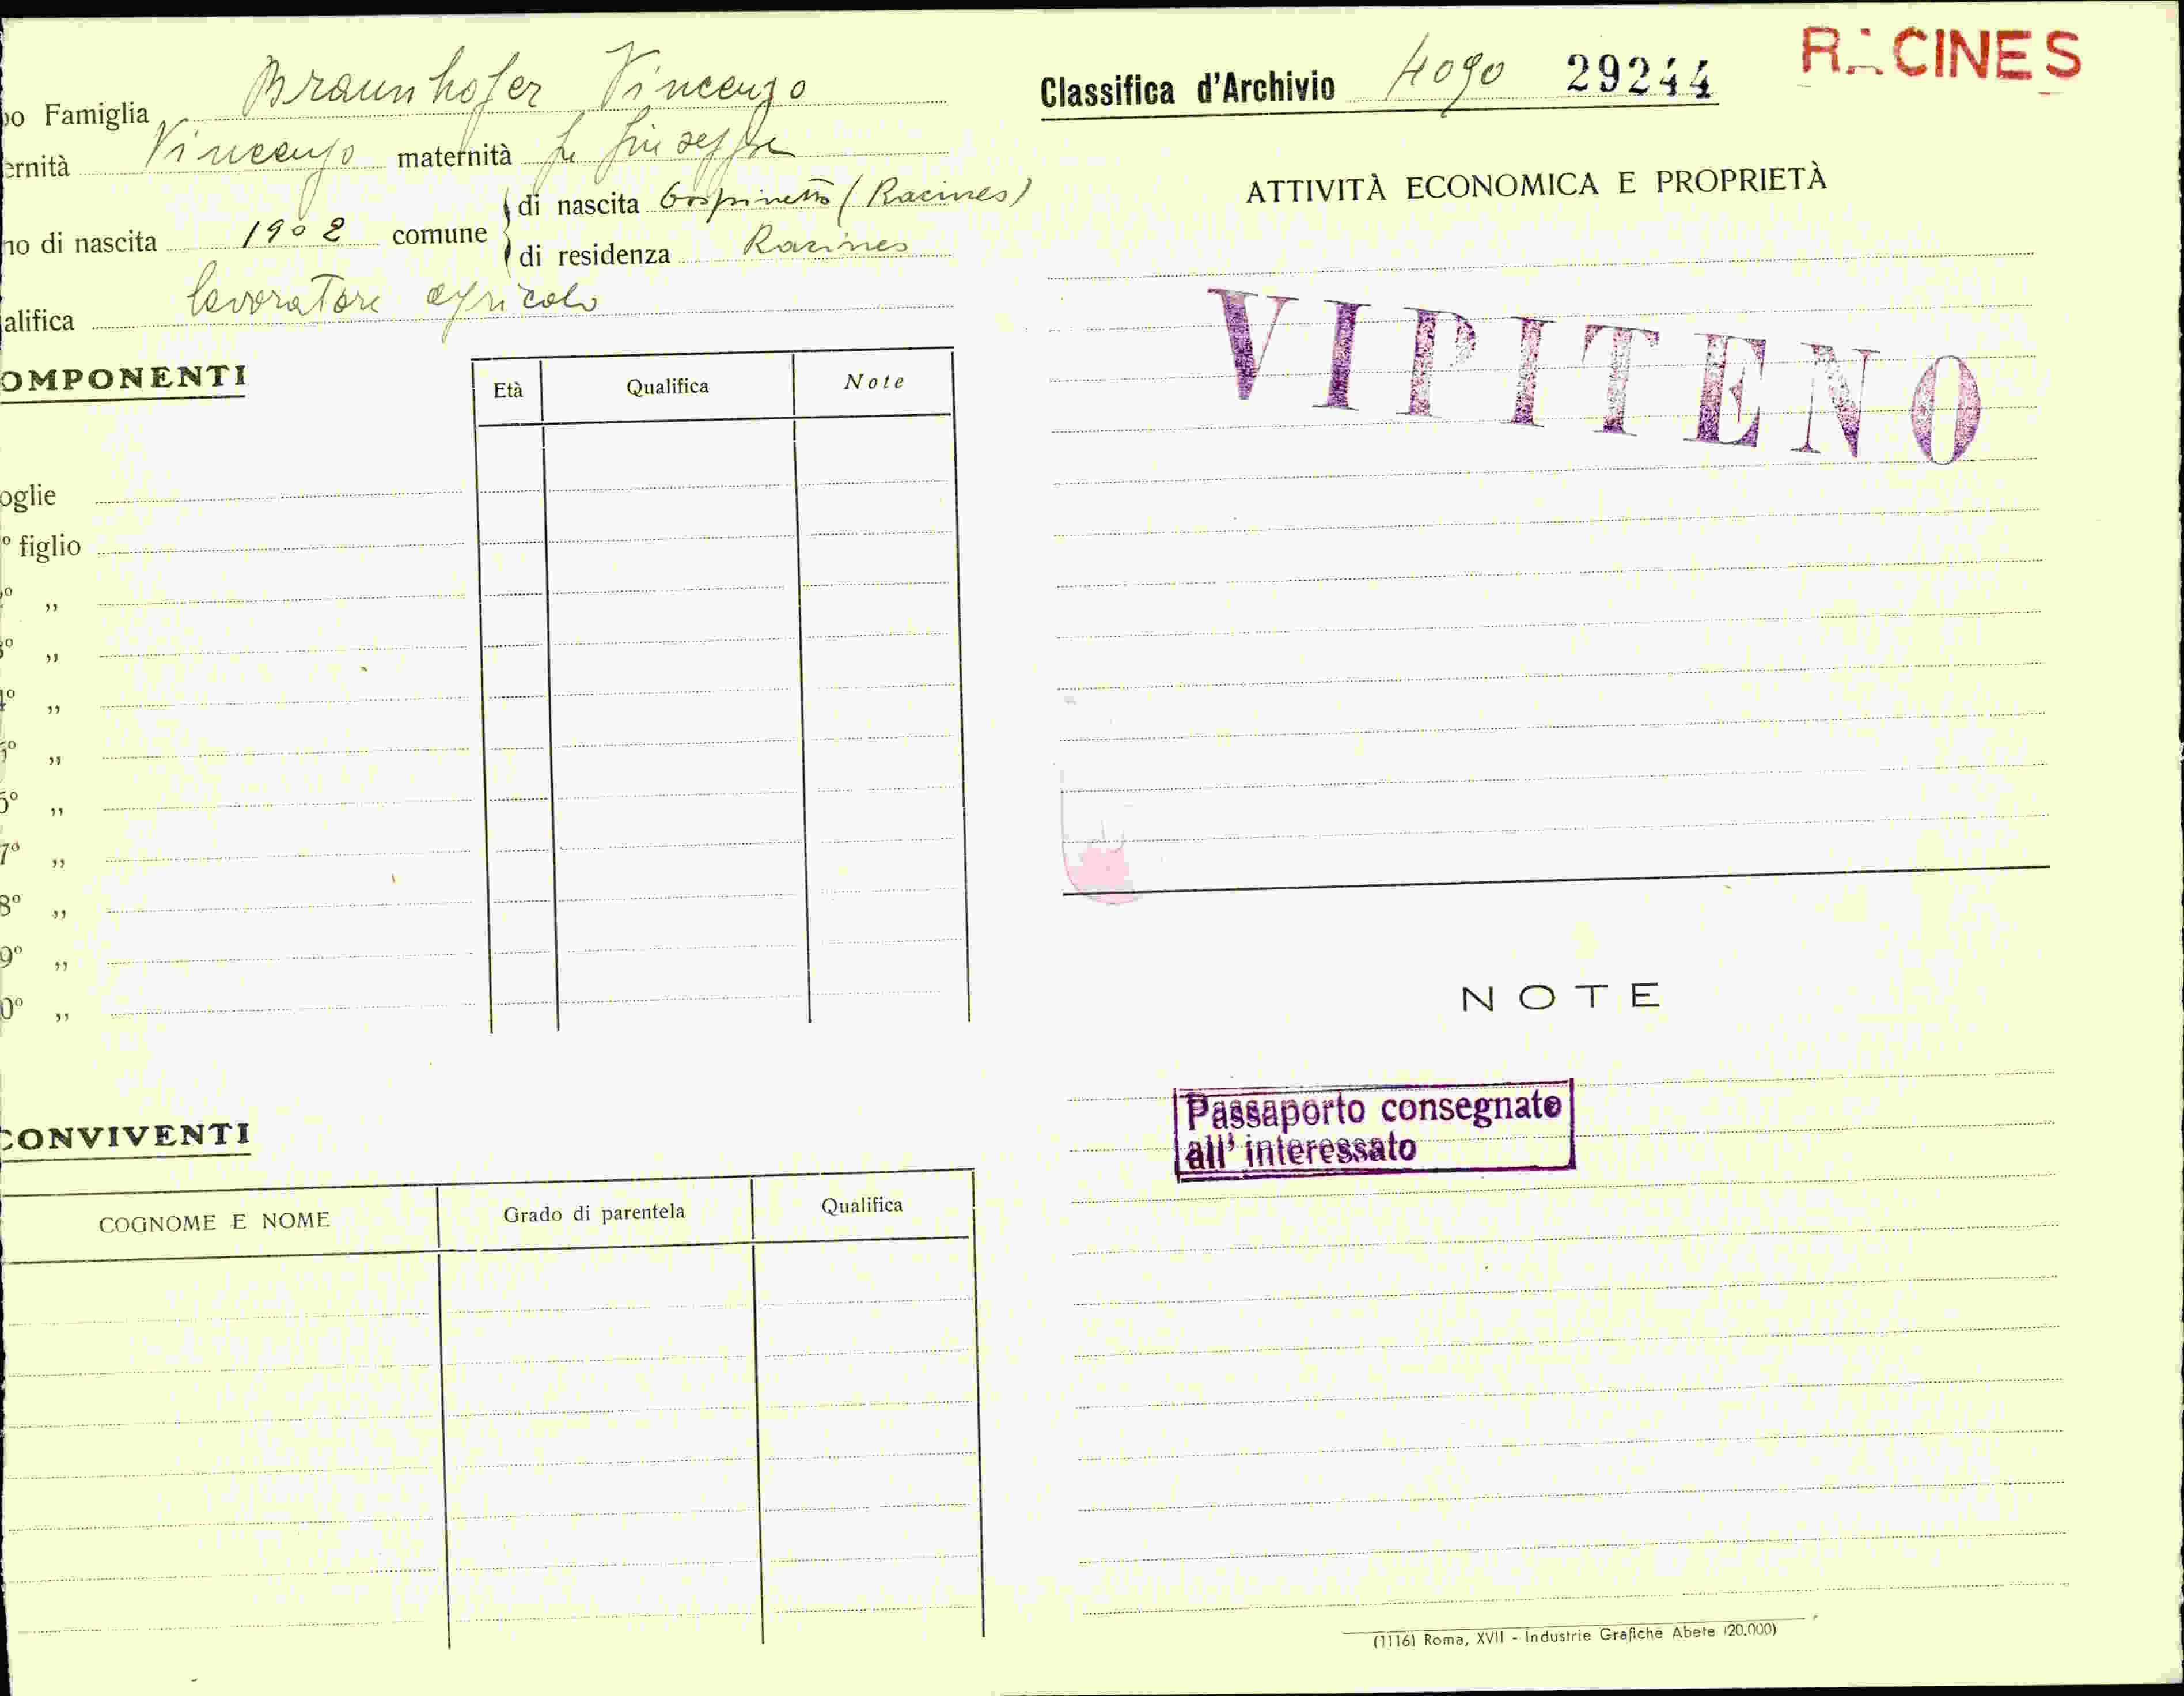 po Famiglia Braunhofer Vincenzo
ernità Vincenzo maternità fu Giuseppa
no di nascita 1902 comune di nascita (Racines)
di residenza Racines
alifica lavoratore agricolo
OMPONENTI
Età Qualifica Note
oglie
° figlio
° „
° „
4° „
5° „
6° „
7° „
8° „
9° „
0° „
CONVIVENTI
COGNOME E NOME Grado di parentela Qualifica
Classifica d'Archivio 4090 29244
RACINES
ATTIVITÀ ECONOMICA E PROPRIETÀ
VIPITENO
NOTE
Passaporto consegnato
all' interessato
(1116) Roma, XVII - Industrie Grafiche Abete (20.000)